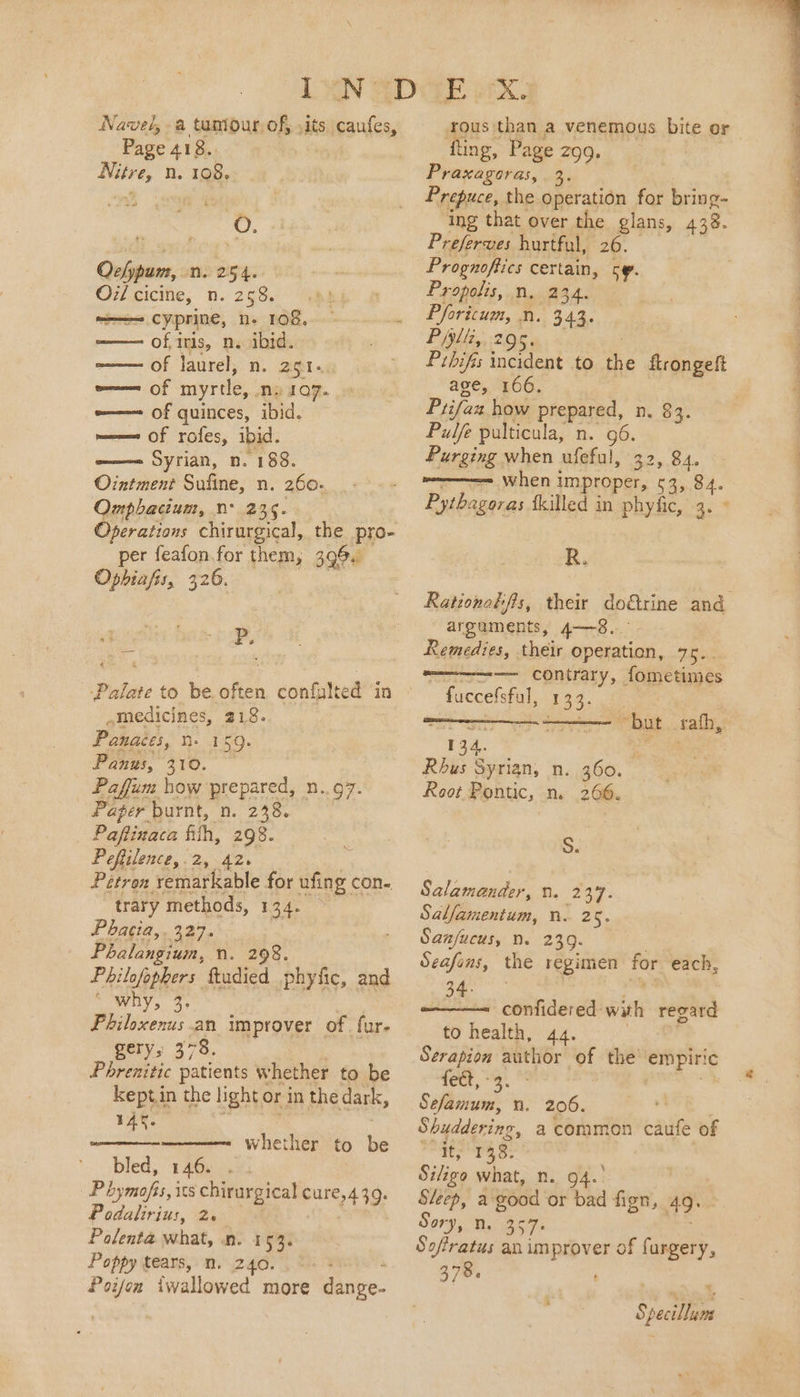 INDEX.
Navel, a tumour of, its caufes,
Page 418.
Nitre, n. 108.
O.
Oefypum, n. 254.
Oil cicine, n. 258.
—— cyprine, n. 108.
—— of iris, n. ibid.
—— of laurel, n. 251.
—— of myrtle, n. 107.
—— of quinces, ibid.
—— of rofes, ibid.
—— Syrian, n. 188.
Ointment Sufine, n. 260.
Omphacium, n. 235.
Operations chirurgical, the pro-
per feafon for them, 396.
Ophiafis, 326.
P.
Palate to be often confulted in
medicines, 218.
Panaces, n. 159.
Panus, 310.
Paffum how prepared, n. 97.
Paper burnt, n. 238.
Paftinaca fifh, 298.
Peftilence, 2, 42.
Petron remarkable for ufing con-
trary methods, 134.
Phagia, 327.
Phalangium, n. 298.
Philofophers ftudied phyfic, and
why, 3.
Philoxenus an improver of fur-
gery, 378.
Phrenitic patients whether to be
kept in the light or in the dark,
145.
—— —— whether to be
bled, 146.
Phymofis, its chirurgical cure, 439.
Podalirius, 2.
Polenta what, n. 153.
Poppy tears, n. 240.
Poifon fwallowed more dange-
rous than a venemous bite or
fting, Page 299.
Praxagoras, 3.
Prepuce, the operation for bring-
ing that over the glans, 438.
Preferves hurtful, 26.
Prognoftics certain,
Propolis, n. 234.
Pforicum, n. 343.
Pfylli, 295.
Pthifis incident to the ftrongeft
age, 166.
Ptifan how prepared, n. 83.
Pulfe pulticula, n. 96.
Purging when ufeful, 32, 84.
—— when improper, 53, 84.
Pythagoras fkilled in phyfic, 3.
R.
Rationalifts, their doctrine and
arguments, 4—8.
Remedies, their operation, 75.
—— — contrary, fometimes
fuccefsful, 133.
—— —— but rafh,
134.
Rhus Syrian, n. 360.
Root Pontic, n. 266.
S.
Salamander, n. 237.
Salfamentum, n. 25.
Sanfucus, n. 239.
Seafons, the regimen for each,
34.
—— confidered with regard
to health, 44.
Serapion author of the empiric
fect, 3.
Sefamum, n. 206.
Shuddering, a common caufe of
it, 138.
Siligo what, n. 94.
Sleep, a good or bad fign, 49.
Sory, n. 357.
Softratus an improver of furgery,
378.
Specillum